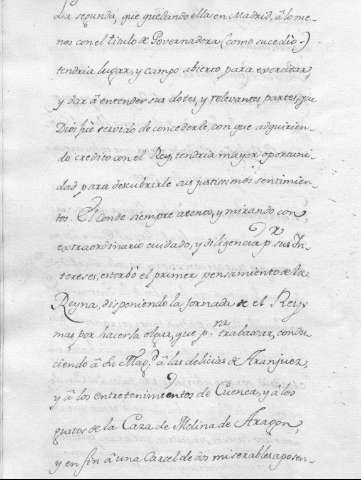 La segunda, que quedando ella en Madrid, â lo me-
nos con el titulo de Governadora (como sucediò)
tendria lugar, y campo abierto para exercitar,
y dar â entender sus dotes, y relevantes partes, qu
Dios fue servido de concederle, con que adquirien-
do credito con el Rey, tendria mayor oportuni-
dad para descubrirle sus justissimos sentimien-
tos. El Conde siempre atento, y mirando con
extraordinario cuidado, y diligencia pr. sus In-
tereses, estorbô el primer pensamiento de la
Reyna, disponiendo la Jornada de el Rey,
mas por hacerla olgar, que pr. trabaxar, condu-
ciendo â Su Magd. â las delicias de Aranjuez,
y â los entretenimientos de Cuenca, y â los
gustos de la Caza de Molina de Aragon,
y en fin â una Carcel de dos miserables aposen-